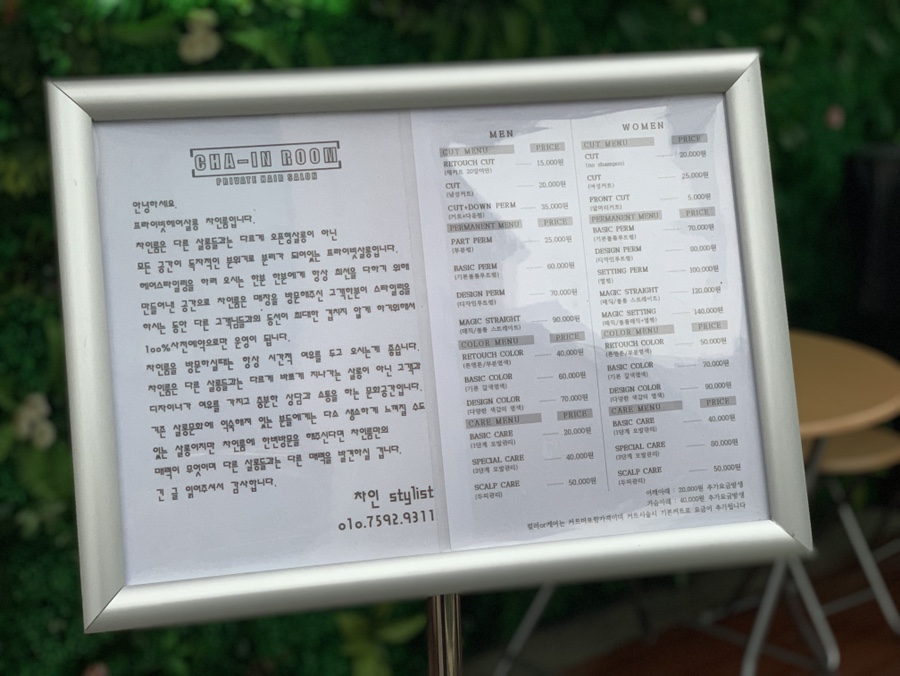 CHA-IN ROOM
PRIVATE HAIR SALON
안녕하세요.
프라이빗헤어살롱 차인룸입니다.
차인룸은 다른 살롱들과는 다르게 오픈형살롱이 아닌
모든 공간이 독자적인 분위기로 분리가 되어있는 프라이빗살롱입니다.
헤어스타일링을 하러 오시는 한분 한분에게 항상 최선을 다하기 위해
만들어낸 공간으로 차인룸은 매장을 방문해주신 고객한분이 스타일링을
하시는 동안 다른 고객님들과의 동선이 최대한 겹치지 않게 하기위해서
100%사전예약으로만 운영이 됩니다.
차인룸을 방문하실때는 항상 시간적 여유를 두고 오시는게 좋습니다.
차인룸은 다른 살롱들과는 다르게 바쁘게 지나가는 살롱이 아닌 고객과
디자이너가 여유를 가지고 충분한 상담과 소통을 하는 문화공간입니다.
기존 살롱문화에 익숙해져 있는 분들에게는 다소 생소하게 느껴질 수도
있는 살롱이지만 차인룸에 한번방문을 해주신다면 차인룸만의
매력이 무엇이며 다른 살롱들과는 다른 매력을 발견하실 겁니다.
긴 글 읽어주셔서 감사합니다.
차인 stylist
010.7592.9311
MEN
CUT MENU PRICE
RETOUCH CUT 15,000원
(재커트 20일미만)
CUT 20,000원
(남성커트)
CUT+DOWN PERM 35,000원
(커트+다운펌)
PERMANENT MENU PRICE
PART PERM 25,000원
(부분펌)
BASIC PERM 60,000원
(기본볼륨루즈펌)
DESIGN PERM 70,000원
(디자인루즈펌)
MAGIC STRAIGHT 90,000원
(매직/볼륨 스트레이트)
COLOR MENU PRICE
RETOUCH COLOR 40,000원
(뿌염몬/부분염색)
BASIC COLOR 60,000원
(기본 갈색염색)
DESIGN COLOR 70,000원
(다양한 색감의 염색)
CARE MENU PRICE
BASIC CARE 20,000원
(1단계 모발관리)
SPECIAL CARE 40,000원
(3단계 모발관리)
SCALP CARE 50,000원
(두피관리)
WOMEN
CUT MENU PRICE
CUT 20,000원
(no shampoo)
CUT 25,000원
(여성커트)
FRONT CUT 5,000원
(앞머리커트)
PERMANENT MENU PRICE
BASIC PERM 70,000원
(기본볼륨루즈펌)
DESIGN PERM 80,000원
(디자인루즈펌)
SETTING PERM 100,000원
(열펌)
MAGIC STRAIGHT 120,000원
(매직/볼륨 스트레이트)
MAGIC SETTING 140,000원
(매직/볼륨매직+열펌)
COLOR MENU PRICE
RETOUCH COLOR 50,000원
(뿌염몬/부분염색)
BASIC COLOR 70,000원
(기본 갈색염색)
DESIGN COLOR 90,000원
(다양한 색감의 염색)
CARE MENU PRICE
BASIC CARE 40,000원
(1단계 모발관리)
SPECIAL CARE 80,000원
(3단계 모발관리)
SCALP CARE 50,000원
(두피관리)
어깨아래 : 20,000원 추가요금발생
가슴아래 : 40,000원 추가요금발생
컬러or케어는 커트미포함가격이며 커트시술시 기본커트로 요금이 추가됩니다